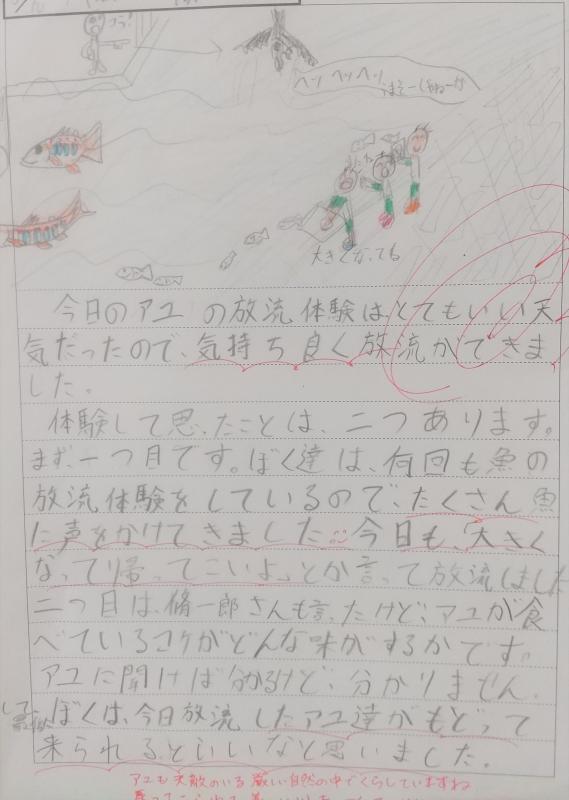 コラ!
ヘッ ヘッヘッ
うまそーじゃねーか
大きくなっても
今日のアユの放流体験は、とてもいい天
気だったので、気持ち良く放流ができま
した。
体験して思ったことは、二つあります。
まず、一つ目です。ぼく達は、何回も魚の
放流体験をしているので、たくさん魚
に声をかけてきました。今日も、大きく
なって帰ってこいよ。とか言って放流しました
二つ目は、脩一郎さんも言ったけど、アユが食
べているコケがどんな味がするかです。
アユに聞けば分かるけど、分かりません。
ぼくは、今日放流したアユ達がもどって
来られるといいなと思いました。
アユも天敵のいる厳しい自然の中でくらしていますね